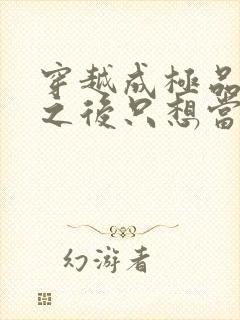 穿越成極品
之後只想當
幻游者